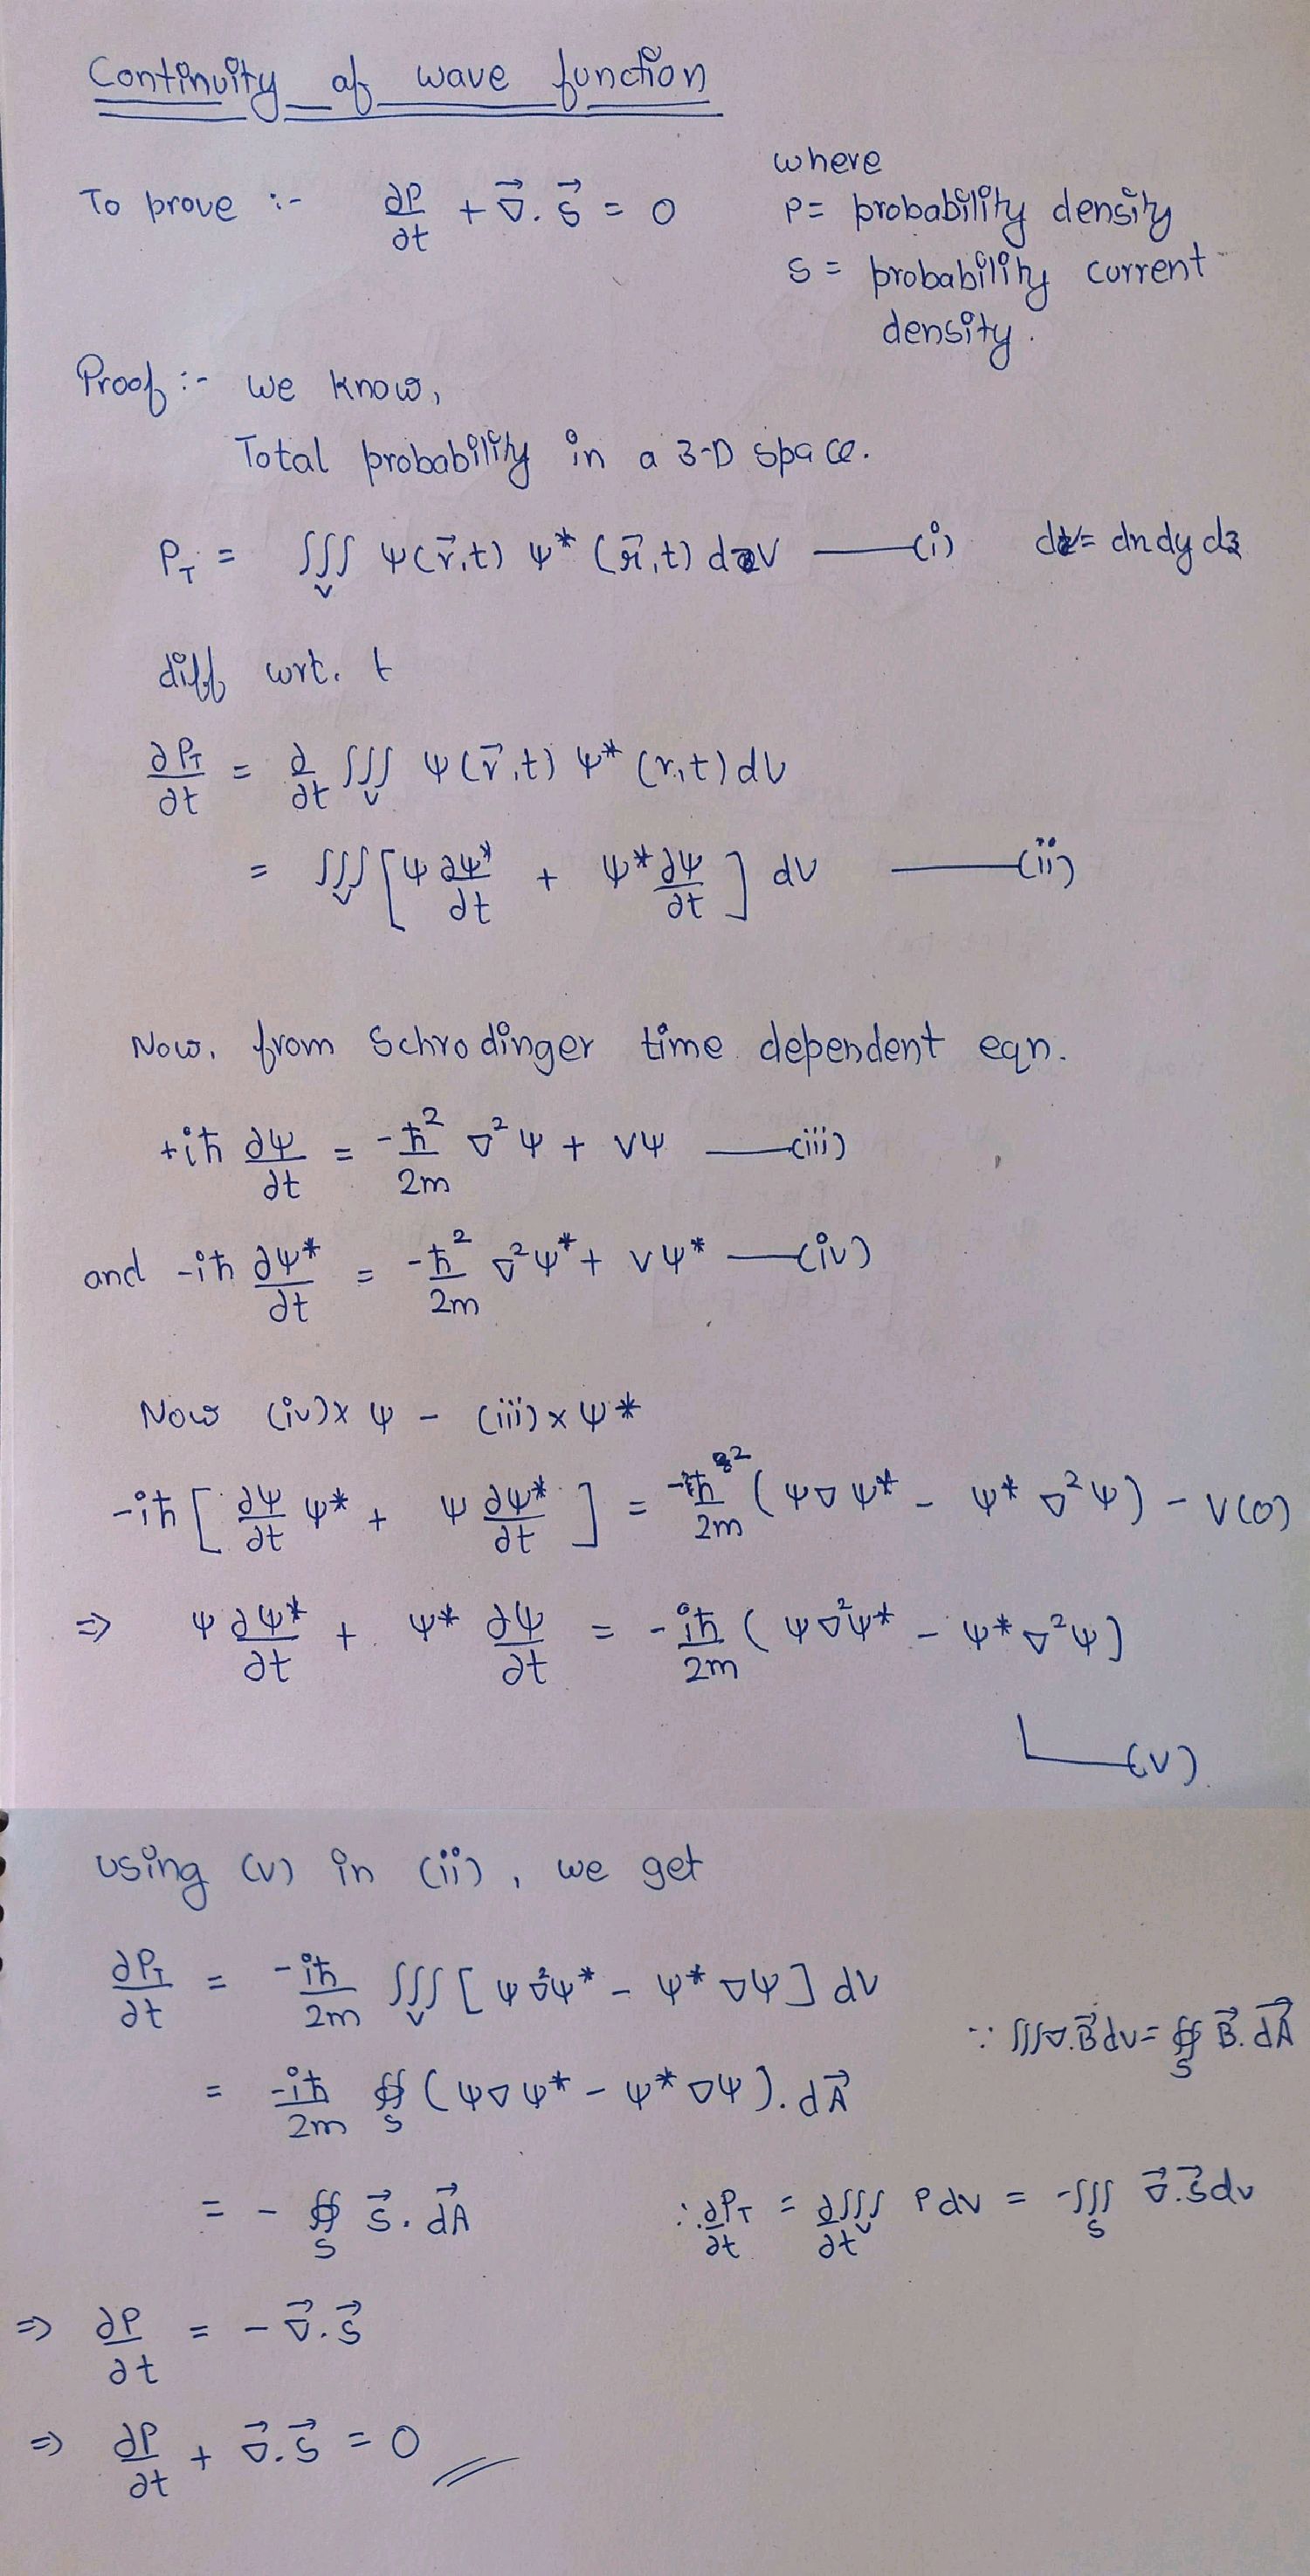 Continuity of wave function
where
To prove :- ∂P/∂t + ∇⃗.S⃗ = 0
P = probability density
S = probability current
density.
Proof :- we know,
Total probability in a 3-D space.
P_T = ∭_V ψ(r⃗,t) ψ* (r⃗,t) dV ——(i) dV = dx dy dz
diff wrt. t
∂P_T/∂t = ∂/∂t ∭_V ψ(r⃗,t) ψ* (r,t) dV
= ∭_V [ψ ∂ψ*/∂t + ψ* ∂ψ/∂t] dV ——(ii)
Now, from Schrodinger time dependent eqn.
+iħ ∂ψ/∂t = -ħ²/2m ∇²ψ + Vψ ——(iii)
and -iħ ∂ψ*/∂t = -ħ²/2m ∇²ψ* + Vψ* ——(iv)
Now (iv)x ψ - (iii) x ψ*
-iħ [∂ψ/∂t ψ* + ψ ∂ψ*/∂t] = -ħ²/2m (ψ∇ψ* - ψ* ∇²ψ) - V(0)
⇒ ψ ∂ψ*/∂t + ψ* ∂ψ/∂t = -iħ/2m (ψ∇²ψ* - ψ*∇²ψ)
——(v)
using (v) in (ii), we get
∂P_T/∂t = -iħ/2m ∭_V [ψ∇²ψ* - ψ*∇ψ] dV
∵ ∭∇.B⃗ dv = ∯_S B⃗.dA⃗
= -iħ/2m ∯_S (ψ∇ψ* - ψ*∇ψ).dA⃗
= - ∯_S S⃗.dA⃗ ∴ ∂P_T/∂t = ∂/∂t ∭_V P dv = -∭_S ∇⃗.S⃗ dv
⇒ ∂P/∂t = - ∇⃗.S⃗
⇒ ∂P/∂t + ∇⃗.S⃗ = 0